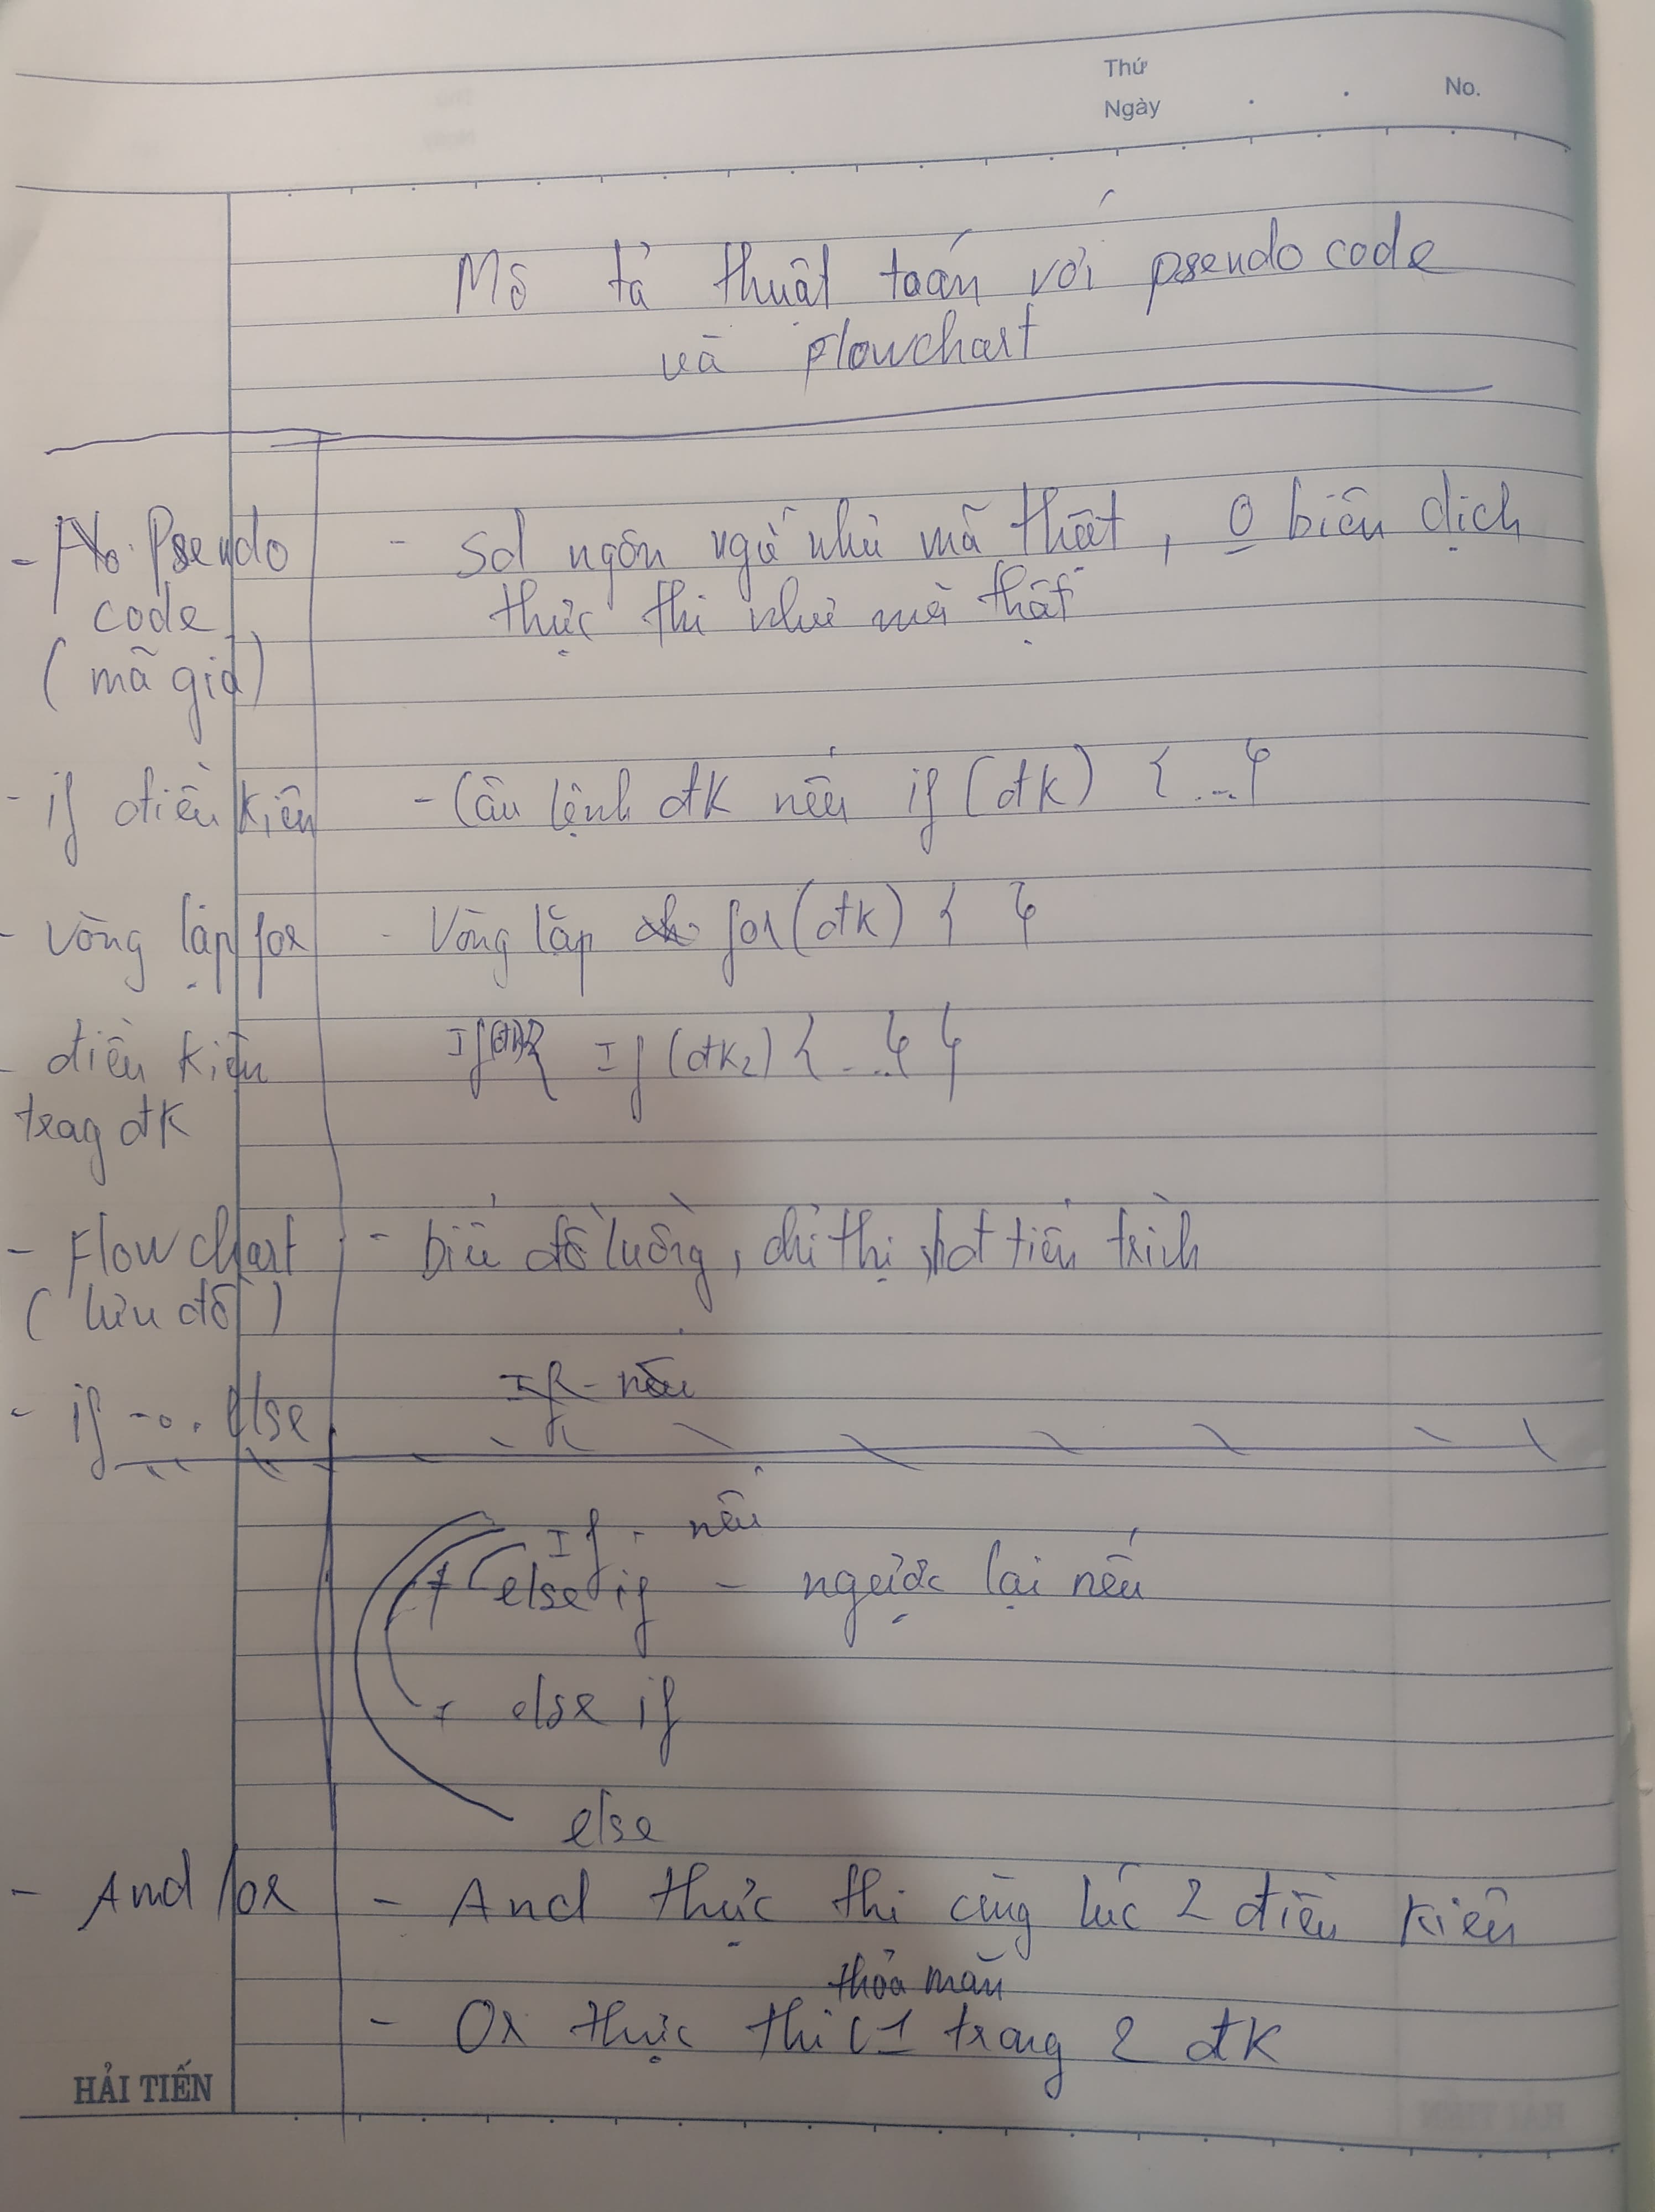 Thứ
Ngày
No.
Mô tả thuật toán với pseudo code
và Flowchart
- Pseudo - Sd ngôn ngữ như mã thật, 0 biên dịch
code thực thi như mã thật
(mã giả)
- if điều kiện - Câu lệnh đk nếu if (đk) { ... }
- Vòng lặp for - Vòng lặp for (đk) { }
- điều kiện If (đk) { If (đk2) { ... } }
trong đk
- Flow chart - biểu đồ luồng, chỉ thị, hđ tiến trình
(lưu đồ)
- if ... else If - nếu
If - nếu
+ else if - ngược lại nếu
+ else if
else
- And / or - And thực thi cùng lúc 2 điều kiện
thỏa mãn
- Or thực thi 1 trong 2 đk
HẢI TIẾN